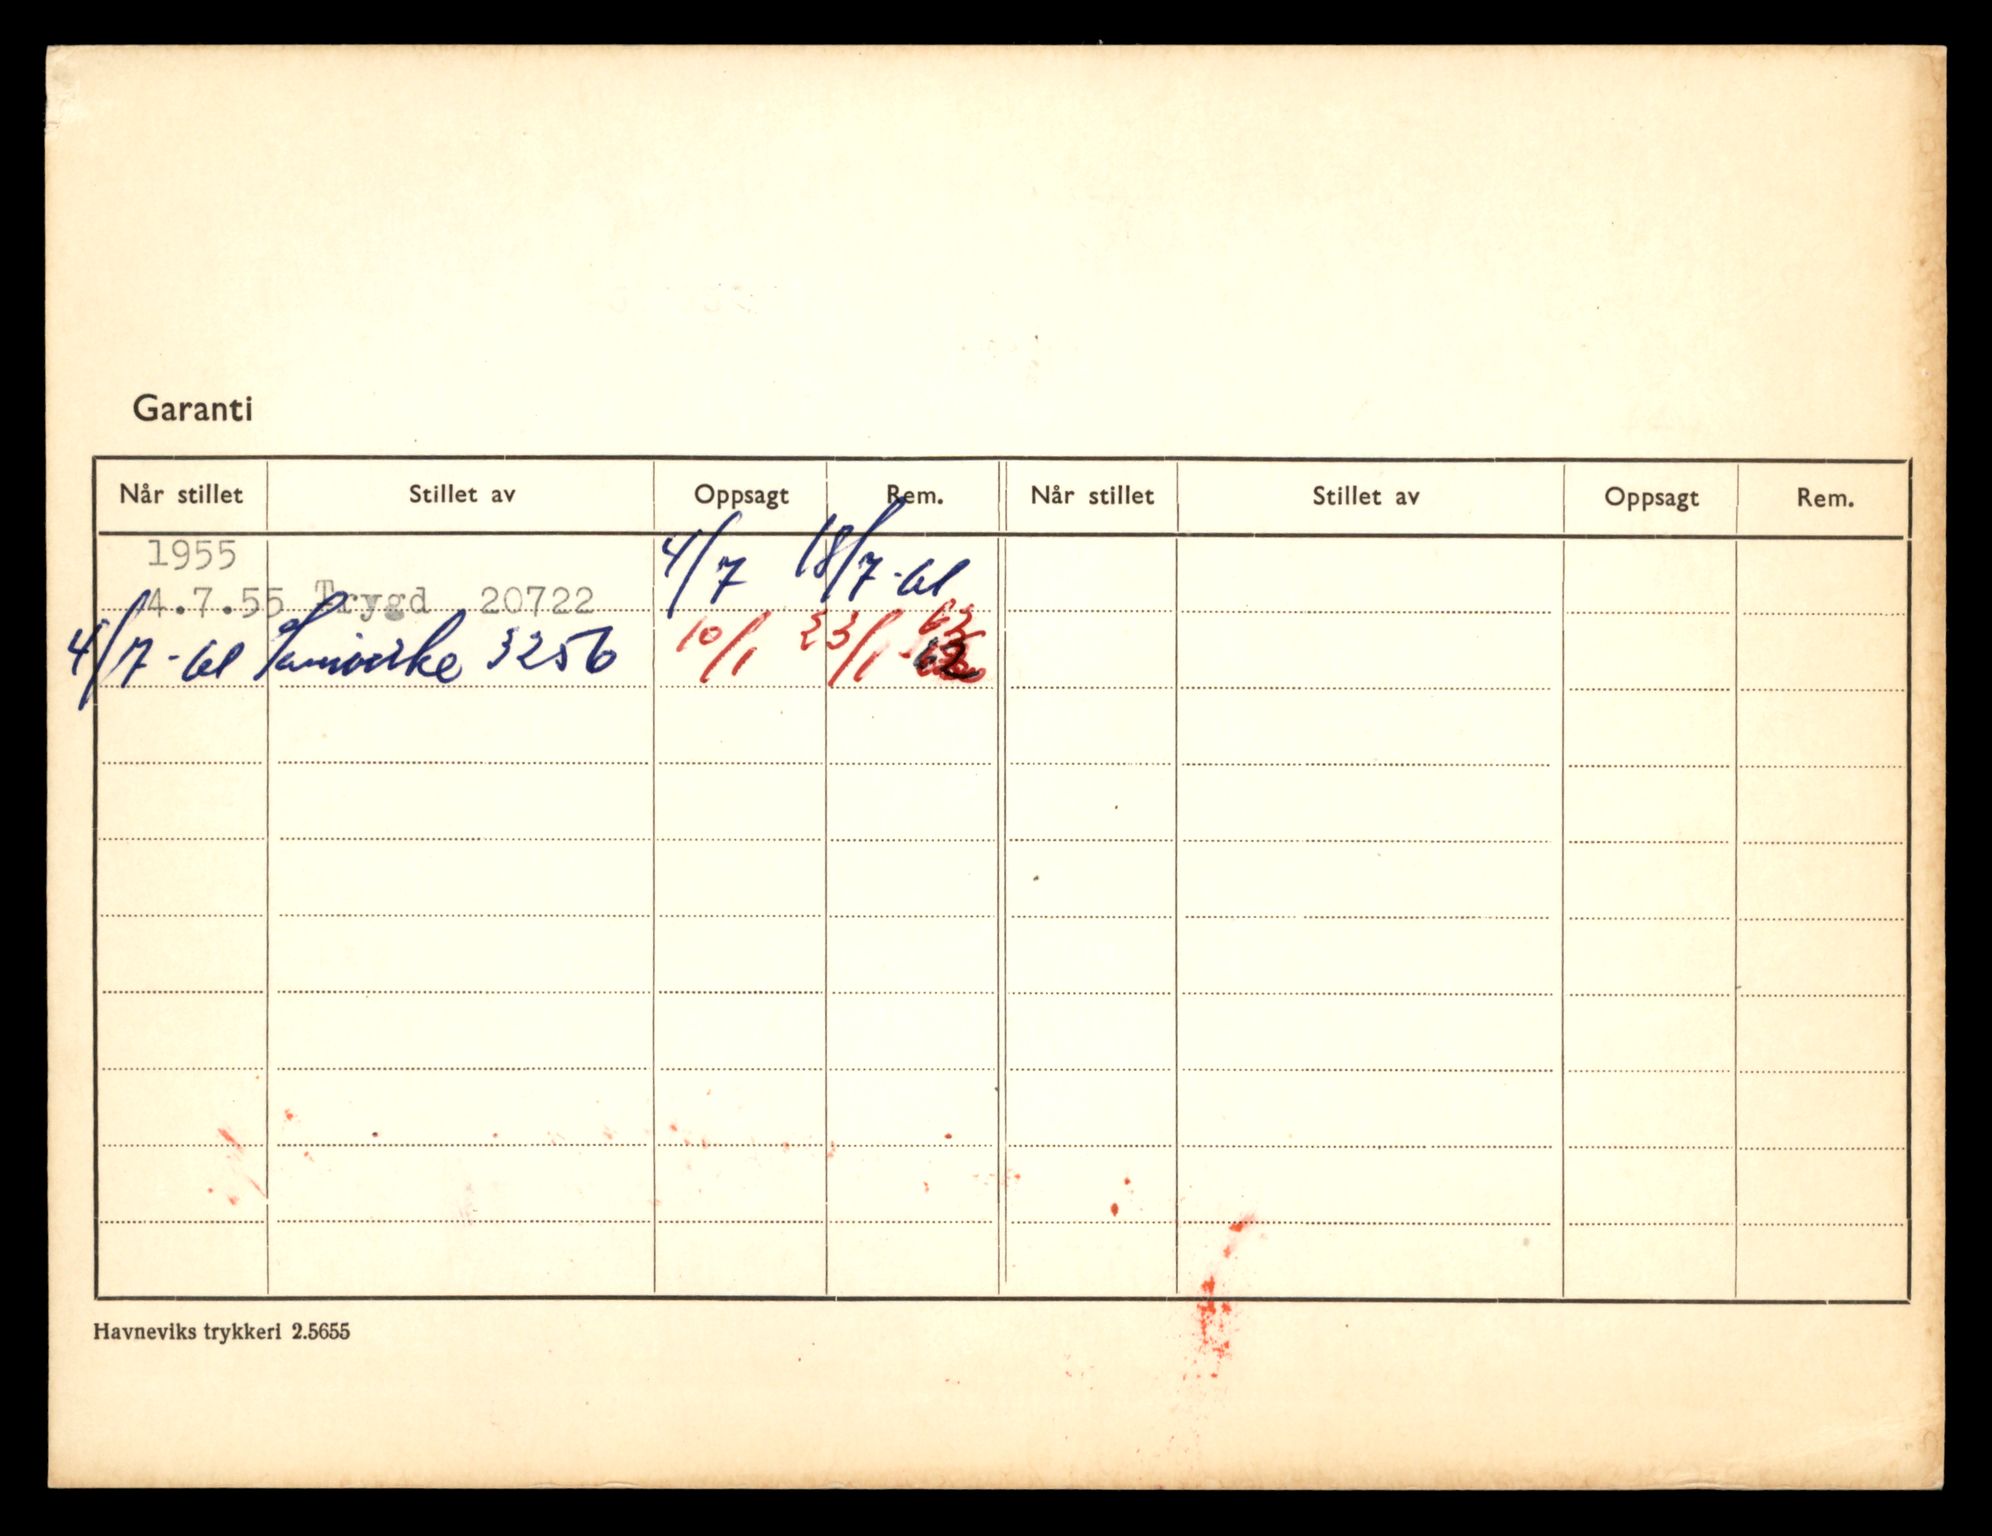 Garanti
Når stillet Stillet av Oppsagt Rem. Når stillet Stillet av Oppsagt Rem.
1955
4.7.55 Trygd 20722 4/7 18/7-61
4/7-61 Samvirke 3256 10/1 23/1 62
62
Havneviks trykkeri 2.5655